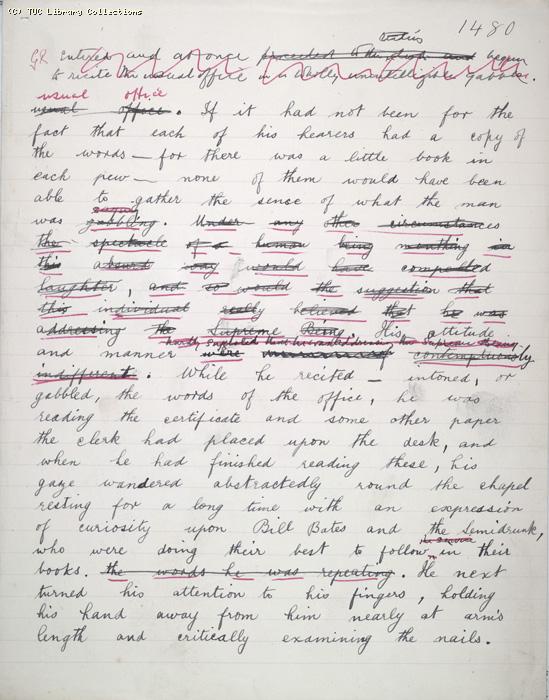 (C) TUC Library Collections
1480
GR Entered and at once proceeded to the desk and began
to recite the usual office in a wholly unintelligible gabble.
usual office
usual office. If it had not been for the
fact that each of his hearers had a copy of
the words — for there was a little book in
each pew — none of them would have been
able to gather the sense of what the man
was gabbling. Under any other circumstances
the spectacle of a human being mouthing in
this absurd way would have compelled
laughter, and so would the suggestion that
this individual really believed that he was
addressing the Supreme Being. His attitude
and manner were contemptuously
indifferent. While he recited — intoned, or
gabbled, the words of the office, he was
reading the certificate and some other paper
the clerk had placed upon the desk, and
when he had finished reading these, his
gaze wandered abstractedly round the chapel
resting for a long time with an expression
of curiosity upon Bill Bates and the Semidrunk,
who were doing their best to follow in their
books. the words he was repeating. He next
turned his attention to his fingers, holding
his hand away from him nearly at arm's
length and critically examining the nails.